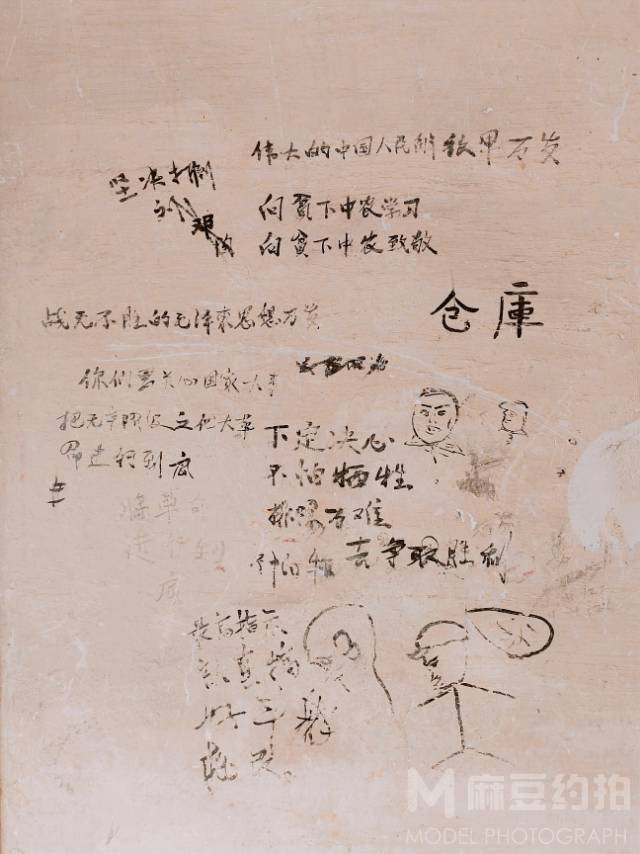 伟大的中国人民解放军万岁
坚决打倒
刘邓陶
向贫下中农学习
向贫下中农致敬
仓庫
战无不胜的毛泽东思想万岁
你们要关心国家大事
把无产阶级文化大革
命进行到底
将革命
进行到
底
下定决心
不怕牺牲
排除万难
去争取胜利
最高指示
认真搞
好斗批
改
M 麻豆约拍
MODEL PHOTOGRAPH